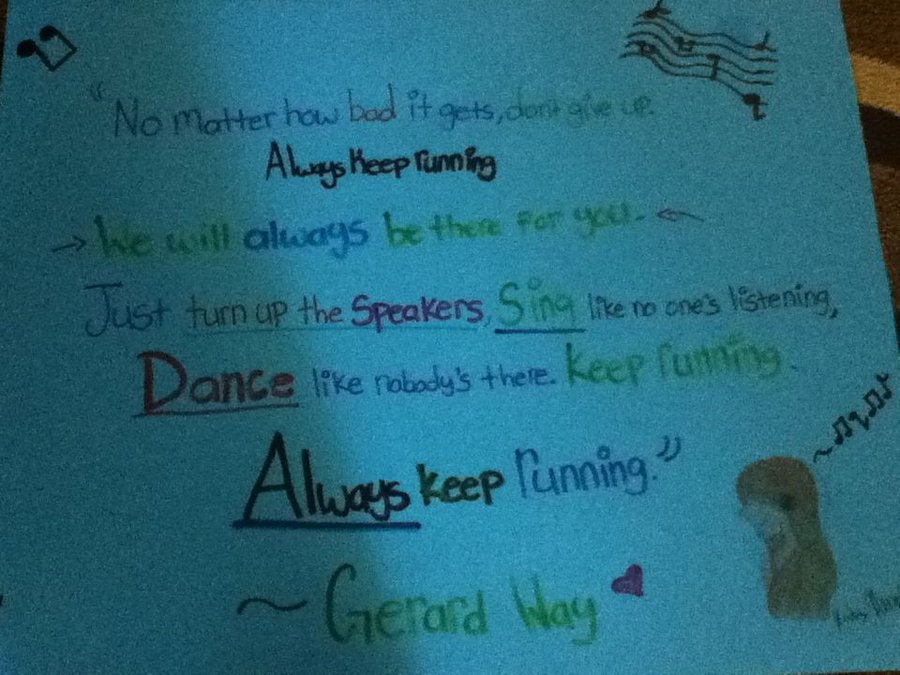 "No matter how bad it gets, don't give up.
Always Keep running
We will always be there for you.
Just turn up the Speakers, Sing like no one's listening,
Dance like nobody's there. Keep running.
Always keep running."
~ Gerard Way